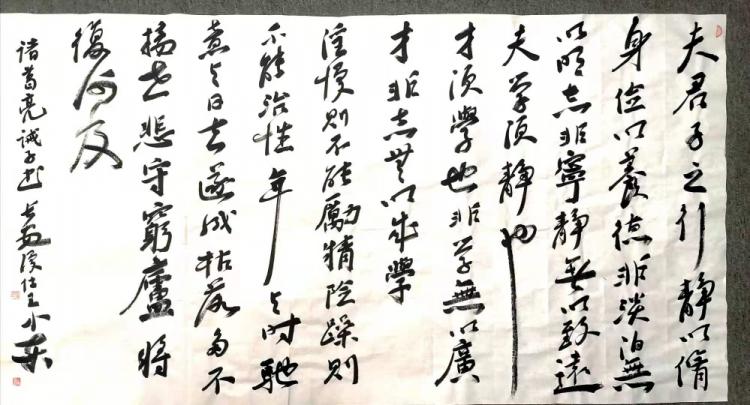 夫君子之行靜以脩
身儉以養德非淡泊無
以明志非寧靜無以致遠
夫學須靜也
才須學也非學無以廣
才非志無以成學
淫慢則不能勵精險躁則
不能治性年與時馳
意與日去遂成枯落多不
接世悲守窮廬將
復何及
諸葛亮誡子書